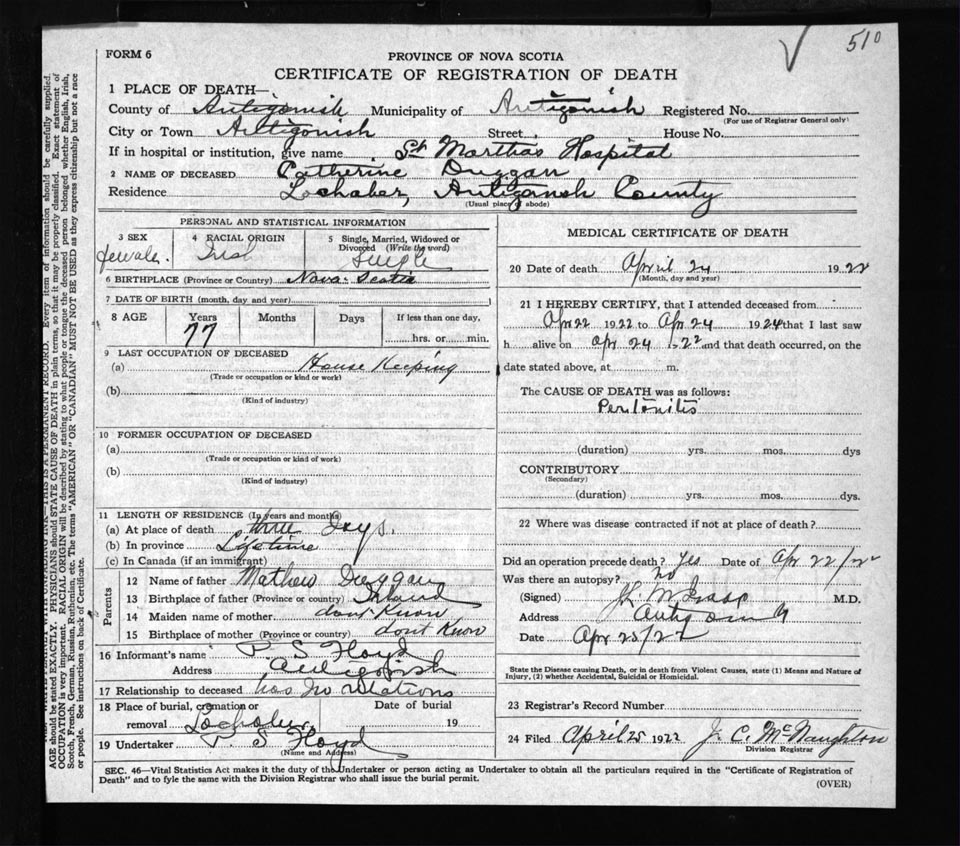 510
FORM 6
PROVINCE OF NOVA SCOTIA
CERTIFICATE OF REGISTRATION OF DEATH
1 PLACE OF DEATH—
County of Antigonish Municipality of Antigonish Registered No.
(For use of Registrar General only)
City or Town Antigonish Street House No.
If in hospital or institution, give name St Marthas Hospital
2 NAME OF DECEASED Catherine Duggan
Residence Lochaber, Antigonish County
(Usual place of abode)
PERSONAL AND STATISTICAL INFORMATION
3 SEX 4 RACIAL ORIGIN 5 Single, Married, Widowed or Divorced (Write the word)
female. Irish Single
6 BIRTHPLACE (Province or Country) Nova Scotia
7 DATE OF BIRTH (month, day and year)
8 AGE Years Months Days If less than one day,
77 hrs. or min.
9 LAST OCCUPATION OF DECEASED
(a) House Keeping
(Trade or occupation or kind or work)
(b)
(Kind of industry)
10 FORMER OCCUPATION OF DECEASED
(a)
(Trade or occupation or kind of work)
(b)
(Kind of industry)
11 LENGTH OF RESIDENCE (In years and months)
(a) At place of death three Days.
(b) In province Lifetime
(c) In Canada (if an immigrant)
Parents
12 Name of father Mathew Duggan
13 Birthplace of father (Province or country) Ireland
14 Maiden name of mother dont Know
15 Birthplace of mother (Province or country) dont Know
16 Informant's name P. S Floyd
Address Antigonish
17 Relationship to deceased has no relations
18 Place of burial, cremation or removal Lochaber Date of burial 19
19 Undertaker P. S Floyd
(Name and Address)
MEDICAL CERTIFICATE OF DEATH
20 Date of death April 24 1922
(Month, day and year)
21 I HEREBY CERTIFY, that I attended deceased from
Apr 22 1922 to Apr 24 1924 that I last saw
h alive on Apr 24 1922 and that death occurred, on the
date stated above, at m.
The CAUSE OF DEATH was as follows:
Peritonitis
(duration) yrs. mos. dys
CONTRIBUTORY
(Secondary)
(duration) yrs. mos. dys.
22 Where was disease contracted if not at place of death?
Did an operation precede death? Yes Date of Apr 22/22
Was there an autopsy? no
(Signed) M.D.
Address
Date Apr 25/22
State the Disease causing Death, or in death from Violent Causes, state (1) Means and Nature of
Injury, (2) whether Accidental, Suicidal or Homicidal.
23 Registrar's Record Number
24 Filed April 25 1922 J. C. McNaughton
Division Registrar
SEC. 46—Vital Statistics Act makes it the duty of the Undertaker or person acting as Undertaker to obtain all the particulars required in the "Certificate of Registration of
Death" and to fyle the same with the Division Registrar who shall issue the burial permit.
(OVER)
WRITE PLAINLY WITH UNFADING INK—THIS IS A PERMANENT RECORD. Every item of information should be carefully supplied.
AGE should be stated EXACTLY. PHYSICIANS should STATE CAUSE OF DEATH in plain terms, so that it may be properly classified. Exact statement of
OCCUPATION is very important. RACIAL ORIGIN will be described by stating to what people or tongue the deceased person belonged whether English, Irish,
Scotch, French, German, Russian, Ruthenian, etc. The terms "AMERICAN" OR "CANADIAN" MUST NOT BE USED as they express citizenship but not a race
or people. See instructions on back of Certificate.